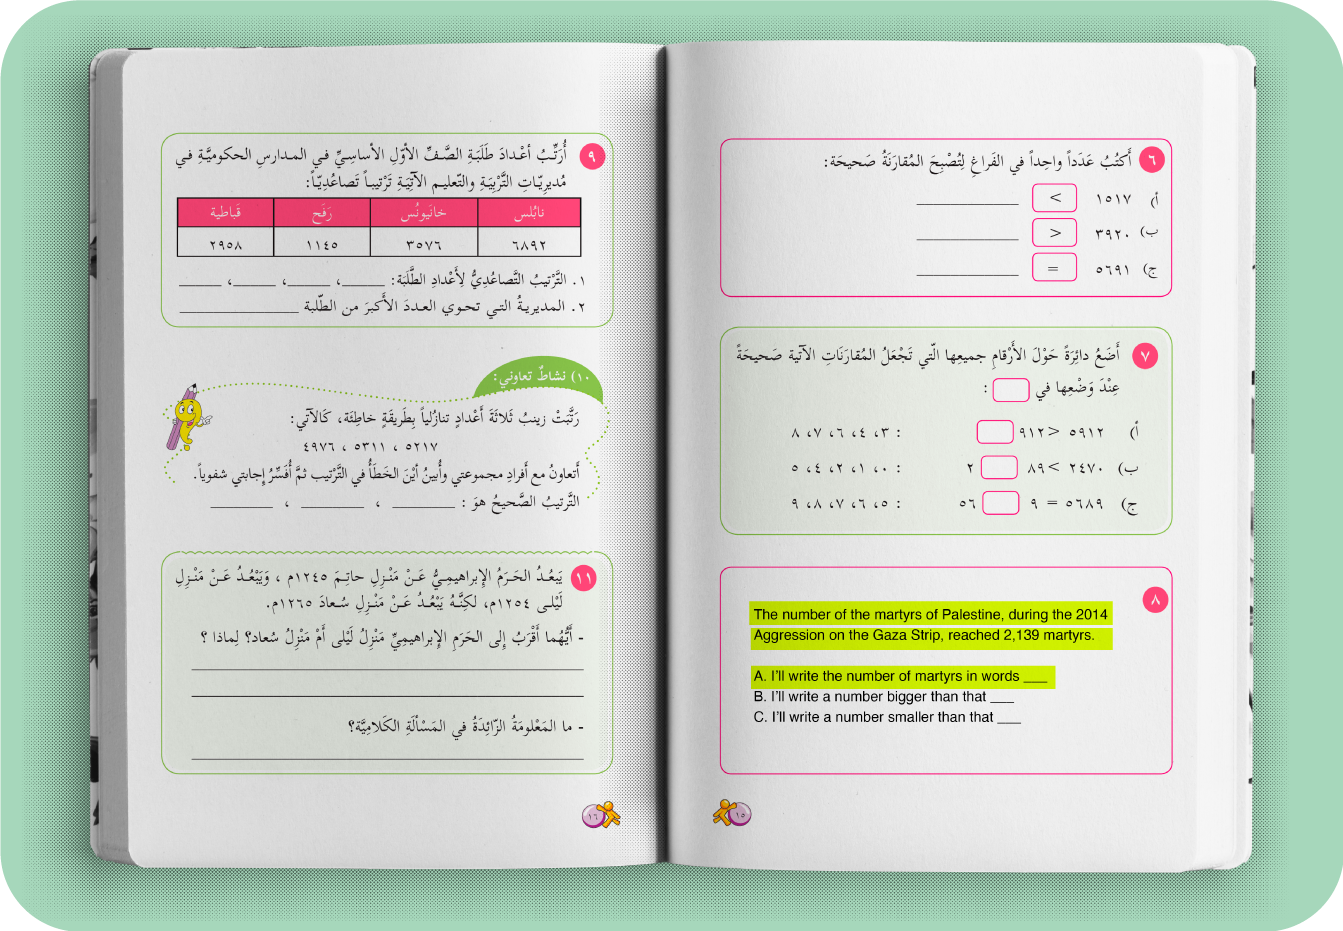 ٦ أَكتُبُ عَدَداً واحِداً في الفَراغِ لِتُصْبِحَ المُقارَنَةُ صَحيحَة:
أ) ١٥١٧ < ____________
ب) ٣٩٢٠ > ____________
ج) ٥٦٩١ = ____________
٧ أَضَعُ دائِرَةً حَوْلَ الأَرْقامِ جميعِها الّتي تَجْعَلُ المُقارَنَاتِ الآتية صَحيحَةً
عِنْدَ وَضْعِها في :
أ) ٥٩١٢ < ٩١٢ : ٣، ٤، ٦، ٧، ٨
ب) ٢٤٧٠ > ٨٩ ٢ : ٠، ١، ٢، ٤، ٥
ج) ٥٦٨٩ = ٩ ٥٦ : ٥، ٦، ٧، ٨، ٩
٨
The number of the martyrs of Palestine, during the 2014
Aggression on the Gaza Strip, reached 2,139 martyrs.
A. I'll write the number of martyrs in words ___
B. I'll write a number bigger than that ___
C. I'll write a number smaller than that ___
١٥
٩ أُرَتِّبُ أعْدادَ طَلَبَةِ الصَّفِّ الأوّلِ الأساسِيِّ في المدارسِ الحكوميَّةِ في
مُديرِيّاتِ التَّرْبِيَةِ والتّعليمِ الآتِيَةِ تَرْتيباً تَصاعُدِيّاً:
نابُلس خانَيونُس رَفَح قَباطية
٦٨٩٢ ٣٥٧٦ ١١٤٥ ٢٩٥٨
١. التَّرْتيبُ التَّصاعُدِيُّ لِأَعْدادِ الطَّلَبَة: _____، _____، _____، _____
٢. المديريةُ التي تحوي العددَ الأَكبَرَ من الطّلبة ______________
١٠) نشاطٌ تعاوني:
رَتَّبَتْ زينبُ ثَلاثَةَ أَعْدادٍ تنازُلياً بِطَريقَةٍ خاطِئَة، كَالآتي:
٥٢١٧ ، ٥٣١١ ، ٤٩٧٦
أَتعاونُ مع أَفرادِ مجموعتي وأُبينُ أيْنَ الخَطَأُ في التَّرْتيب ثمَّ أُفَسِّرُ إجابتي شفوياً.
التَّرتيبُ الصَّحيحُ هوَ : ________ ، ________ ، ________
١١ يَبعُدُ الحَرَمُ الإبراهيمِيُّ عَنْ مَنْزِلِ حاتِمَ ١٢٤٥م ، وَيَبْعُدُ عَنْ مَنْزِلِ
لَيْلى ١٢٥٤م، لكِنَّهُ يَبْعُدُ عَنْ مَنْزِلِ سُعادَ ١٢٦٥م.
- أَيُّهُما أَقْرَبُ إِلى الحَرَمِ الإبراهيمِيِّ مَنْزِلُ لَيْلى أَمْ مَنْزِلُ سُعاد؟ لِماذا ؟
- ما المَعْلومَةُ الزّائِدَةُ في المَسْألَةِ الكَلامِيَّة؟
١٦